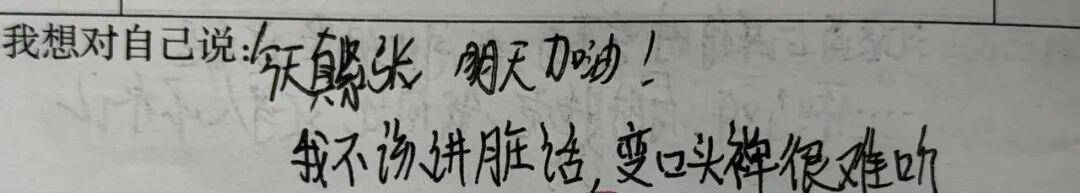 我想对自己说:今天真紧张 明天加油!
我不该讲脏话,变口头禅很难听